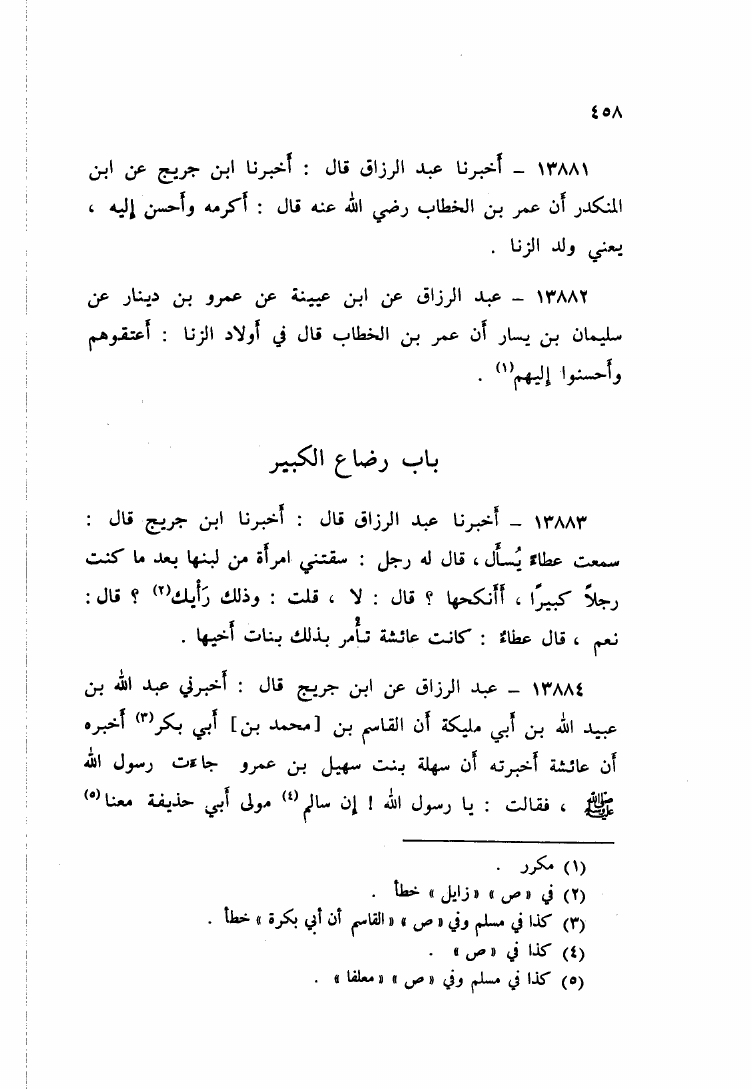 ٤٥٨
١٣٨٨١ – أخبرنا عبد الرزاق قال : أخبرنا ابن جريج عن ابن
المنكدر أن عمر بن الخطاب رضي الله عنه قال : أكرمه وأحسن إليه ،
يعني ولد الزنا .
١٣٨٨٢ – عبد الرزاق عن ابن عيينة عن عمرو بن دينار عن
سليمان بن يسار أن عمر بن الخطاب قال في أولاد الزنا : أعتقوهم
وأحسنوا إليهم(١) .
باب رضاع الكبير
١٣٨٨٣ – أخبرنا عبد الرزاق قال : أخبرنا ابن جريج قال :
سمعت عطاءً يُسأل ، قال له رجل : سقتني امرأة من لبنها بعد ما كنت
رجلاً كبيرًا ، أأنكحها ؟ قال : لا ، قلت : وذلك رَأيك(٢) ؟ قال :
نعم ، قال عطاءٌ : كانت عائشة تأْمر بذلك بنات أخيها .
١٣٨٨٤ – عبد الرزاق عن ابن جريج قال : أخبرني عبد الله بن
عبيد الله بن أبي مليكة أن القاسم بن [محمد بن] أبي بكر(٣) أخبره
أن عائشة أخبرته أن سهلة بنت سهيل بن عمرو جاءت رسول الله
ﷺ ، فقالت : يا رسول الله ! إن سالم(٤) مولى أبي حذيفة معنا(٥)
(١) مكرر .
(٢) في « ص » « زايل » خطأ .
(٣) كذا في مسلم وفي « ص » « القاسم أن أبي بكرة » خطأ .
(٤) كذا في « ص » .
(٥) كذا في مسلم وفي « ص » « معلقا » .